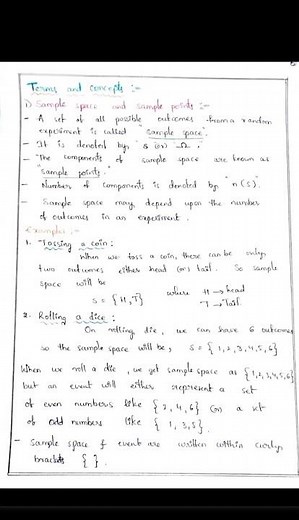 Terms and concepts :-
1) Sample space and sample points :-
- A set of all possible outcomes from a random
experiment is called "sample space".
- It is denoted by 's (or) Ω.'
- The components of sample space are known as
"sample points."
- Number of components is denoted by "n(s)".
- Sample space may depend upon the number
of outcomes in an experiment.
Examples :-
1. Tossing a coin :
When we toss a coin, there can be only
two outcomes either head (or) tail. So sample
space will be
s = {H,T} where H → head
T → Tail.
2. Rolling a dice :
On rolling die, we can have 6 outcomes
so the sample space will be, s = {1,2,3,4,5,6}
When we roll a dice, we get sample space as {1,2,3,4,5,6}
but an event will either represent a set
of even numbers like {2,4,6} (or) a set
of odd numbers like {1,3,5}.
- Sample space & event are written within curly
brackets { }.